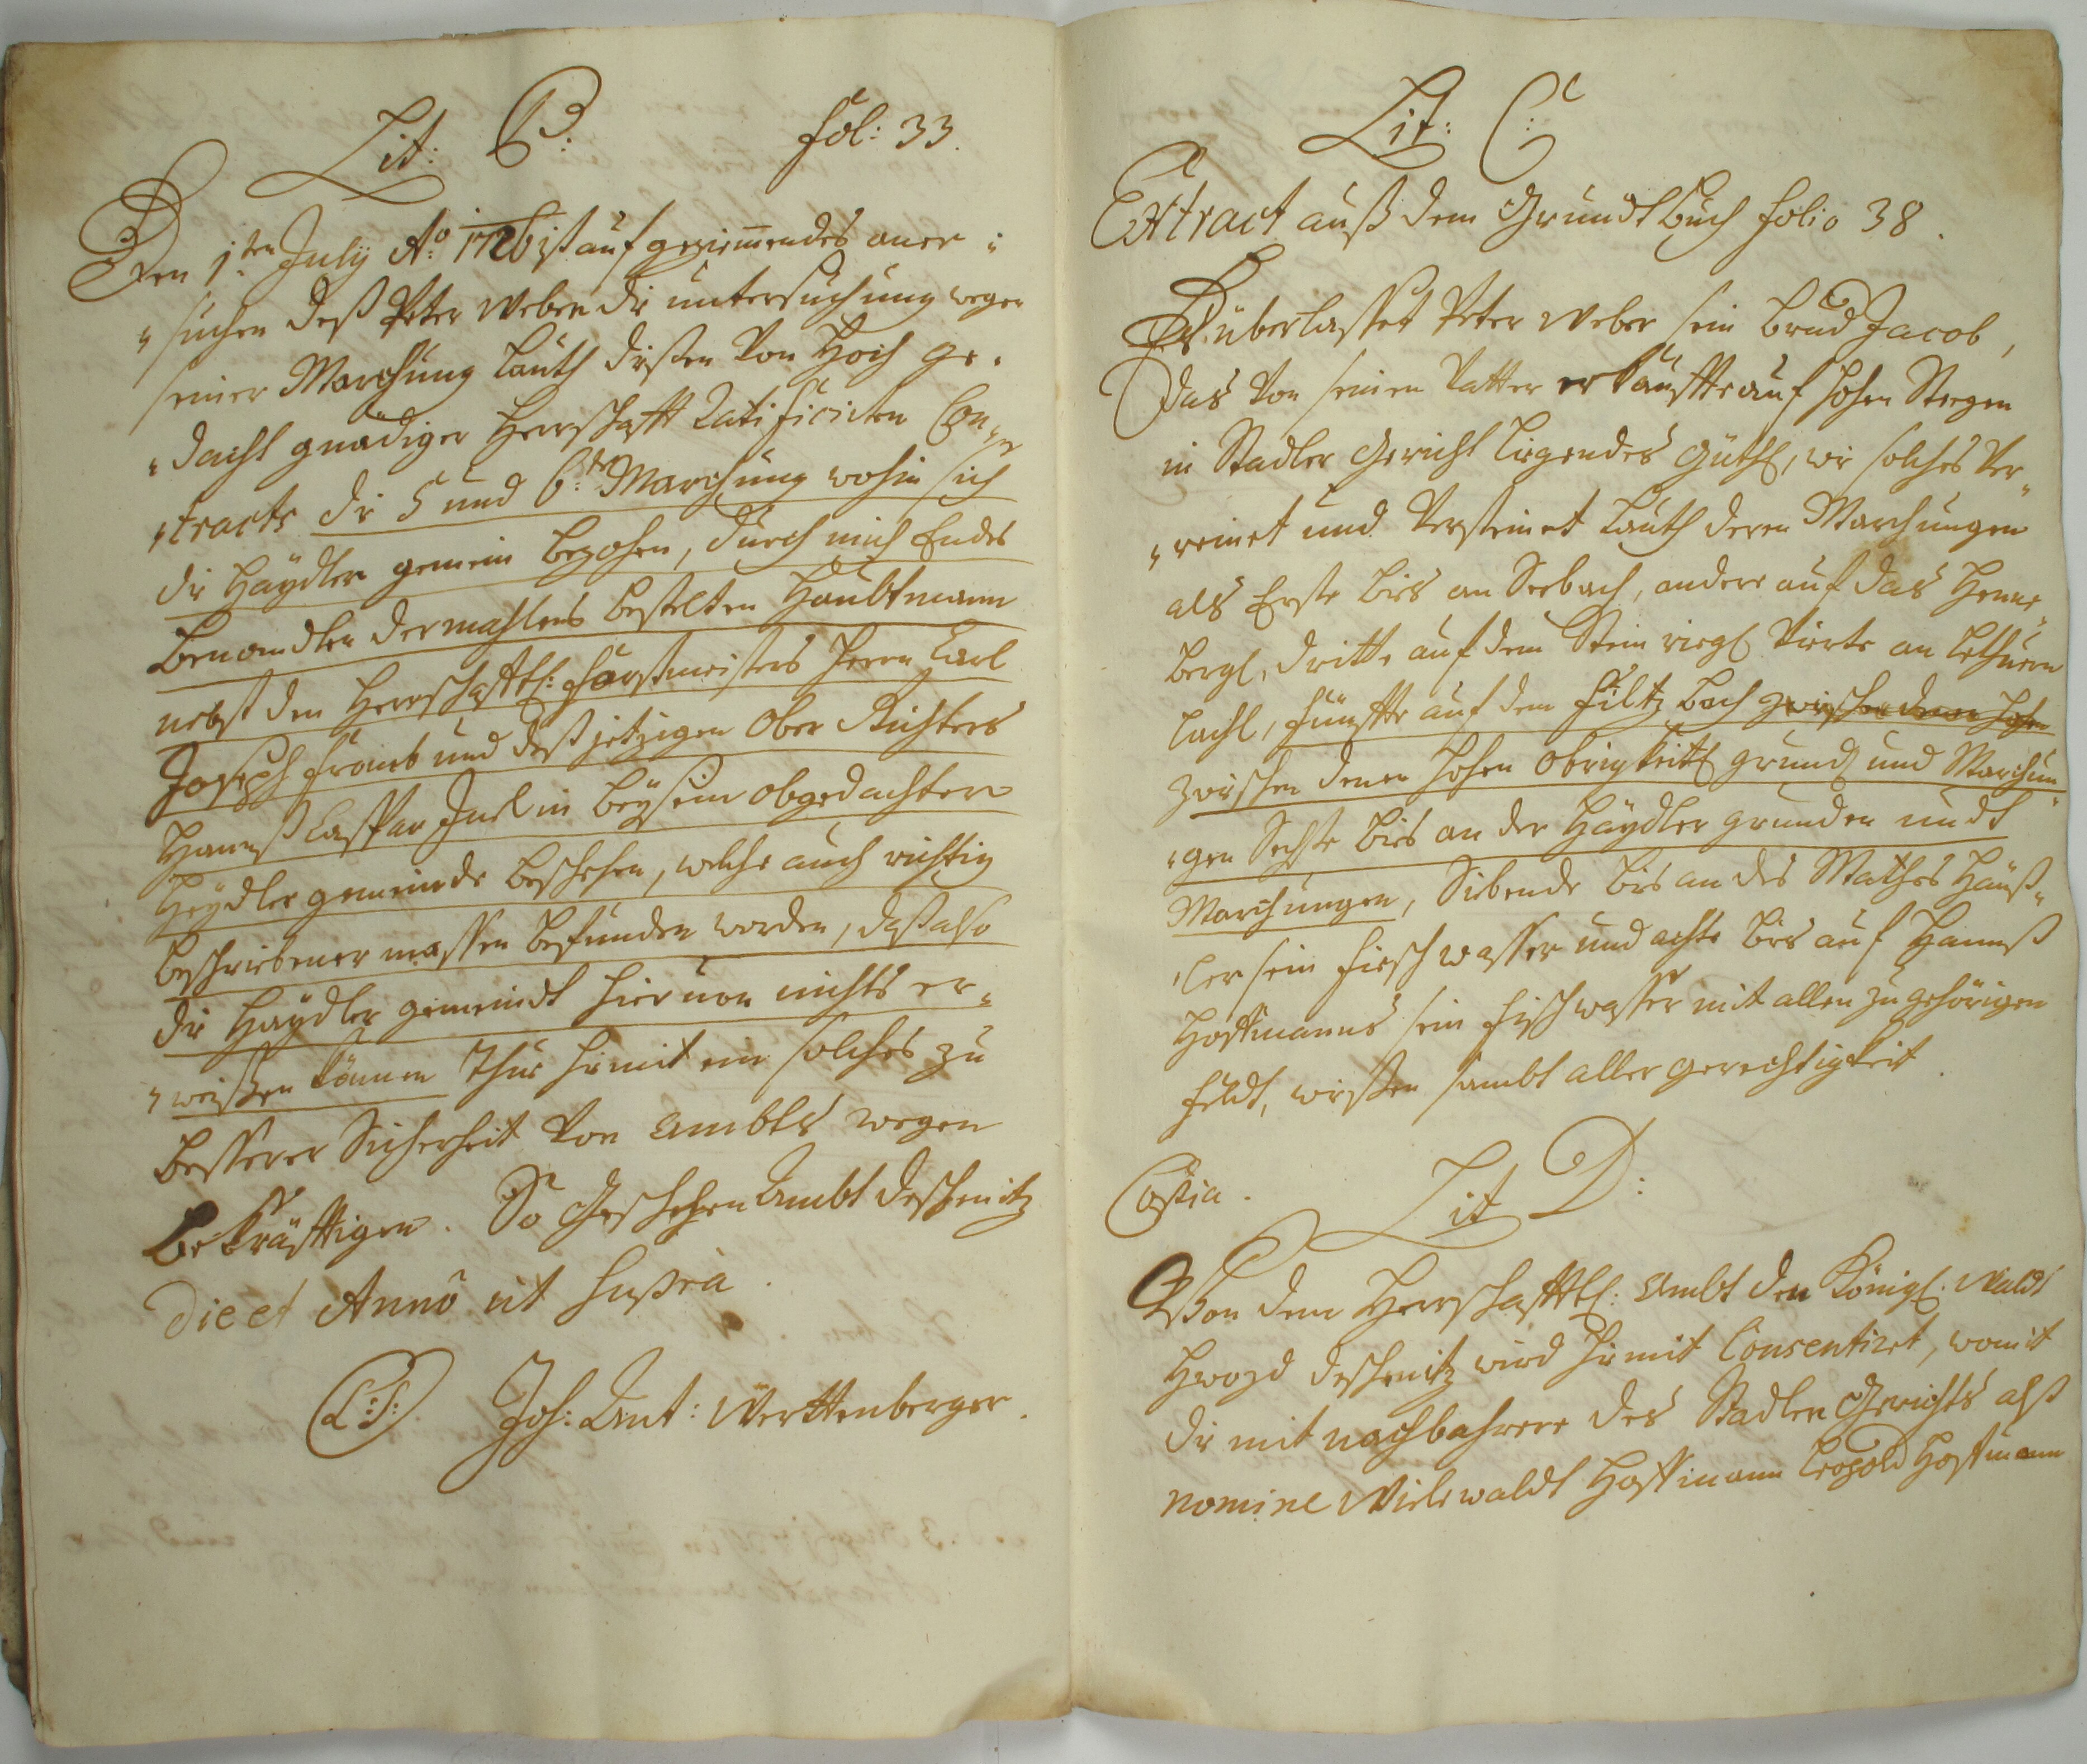 Lit: B: fol: 33.
Den 1ten July Ao: 1726 ist auf geziemmendes aner„
„suchen deß Peter Weber die untersuchung wegen
seiner Marchung lauth dießen von Hoch ge„
„dacht gnädiger Herrschafft Ratificirten Con„
„tracts die 5 und 6te Marchung wohin sich
die Haydler gemein bezohen, durch mich Endes
benandten dermahlens bestelten Haubtmann
nebst den Herrschafftl: Forstmeisters Herrn Carl
Joseph Franb und deß jetzigen Ober Richters
Hannß Caspar Jnel in beysein obgedachter
Heydler gemeinde beschehen, welche auch richtig
beschriebener massen befunden worden, daß also
die Haydler gemeindt hieruon nichts er„
„weißen können Thue hiemit ein solches zu
besserer Sicherheit von Ambts wegen
bekräfftigen. So Geschehen Ambt Deschenitz
Die et Anno ut supra.
L: S: Joh: Ant: Werttenberger.
Lit: C:
Extract auß dem Grundt buch folio 38.
Es überlasset Peter Weber sein brud Jacob,
das von seinen Vatter erkauffte auf hohen Stegen
in Stadler Gericht liegendes güthl, wie solches ver„
„reinet und versteinet lauth deren Marchungen
als Erste bies an Seebach, andere auf das Henne„
bergl, dritte auf dem Stein riegl vierte an
lachl, fünffte auf dem filtz bach zwischen denen hohen
zwischen denen hohen obrigkeitl grund und Marchun„
„gen Sechste bies an der Haydler grunden undt
Marchungen, Siebende bis an des Mathes Häuß„
„ler sein fisch wasser und achte bies auf Hannß
Hoffmanns sein fischwasser mit allen zugehörigen
feldt, wießen sambt aller gerechtigkeit.
Copia. Lit D:
Von dem Herrschafftl: Ambt den Königl. Waldt
Hwozd Deschenitz wird hiemit Consentiret, womit
die mit nachbahrere des Stadler Gerichts alß
nomine Wielewaldt Hoffmann Leopold Hoffmann